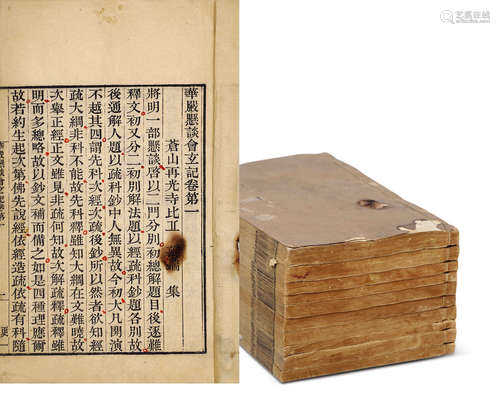 華嚴懸談會玄記卷第一
蒼山再光寺比丘 集
將明一部懸談啓以二門分別初總解題目後逐難
釋文初又分二初別解法題以經疏科鈔題各別故
後通解人題以疏科鈔中人無異故今初大凡開演
不越其四謂先科次經次疏後鈔所以然者欲知經
疏大綱非科不能故先科釋雖知大綱在文難曉故
次舉正經正文雖見非疏何知故次解疏釋疏釋雖
明而多總略故以鈔文補而備之如是四種理應爾
故若約生起次第佛先說經依經造疏依疏有科隨